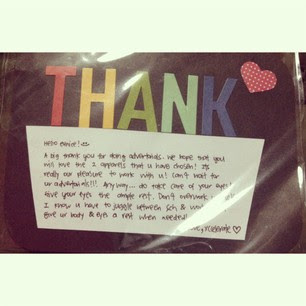 THANK
Hello eunice! ☺
A big thank you for doing advertorials. We hope that you
will love the 2 apparels that u have chosen! Its
really our pleasure to work with u! Can't wait for
ur advertorials!!! Anyway... do take care of your eyes!
Give your eyes the ample rest. Don't overwork
I know u have to juggle between sch & work
give ur body & eyes a rest when needed!